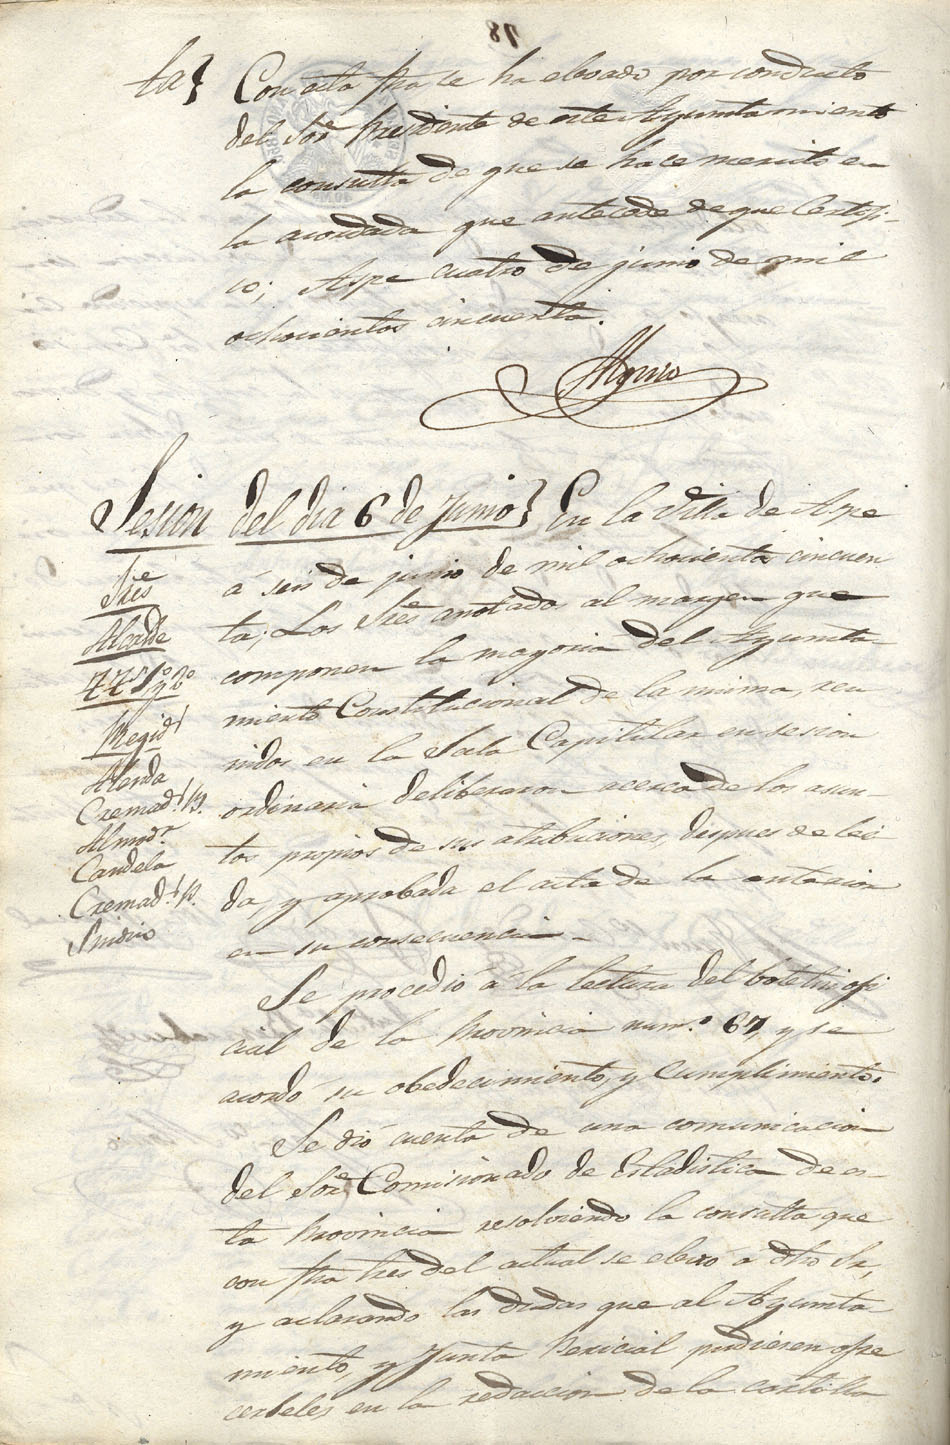 78
ta} Con esta fha se ha elevado por conducto
del Sor. Presidente de este Ayuntamiento
la consulta de que se hace merito en
la acordada que antecede de que Certifi-
co; Aspe cuatro de junio de mil
ochocientos cincuenta.
Sesion del dia 6 de Junio} En la Villa de Aspe
á seis de junio de mil ochocientos cincuen
ta; Los Sres. anotados al margen que
componen la mayoria del Ayunta
miento Constitucional de la misma, reu
nidos en la Sala Capitular en sesion
ordinaria deliberaron acerca de los asun-
tos propios de sus atribuciones, despues de lei
da, y aprobada el acta de la anterior
en su consecuencia -
Sres
Alcalde
TTs 1º y 2º
Regids
Alenda
Cremads. B.
Almodr.
Candela
Cremads. P.
Sindico
Se procedió á la lectura del boletin ofi
cial de la Provincia num.º 67, y se
acordó su obedecimiento, y Cumplimiento.
Se dió cuenta de una comunicacion
del Sor. Comisionado de Estadistica de es-
ta Provincia resolviendo la consulta que
con fha tres del actual se elevó a dho Sr,
y aclarando las dudas que al Ayunta
miento, y Junta Pericial pudiesen ofre
cerseles en la redaccion de la cartilla